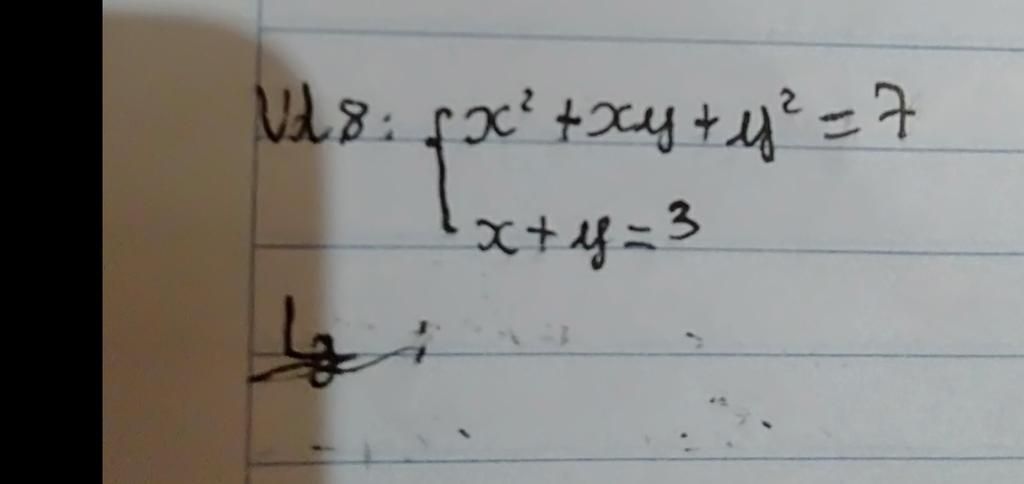 Vd 8: { x² + xy + y² = 7
x + y = 3
Lg